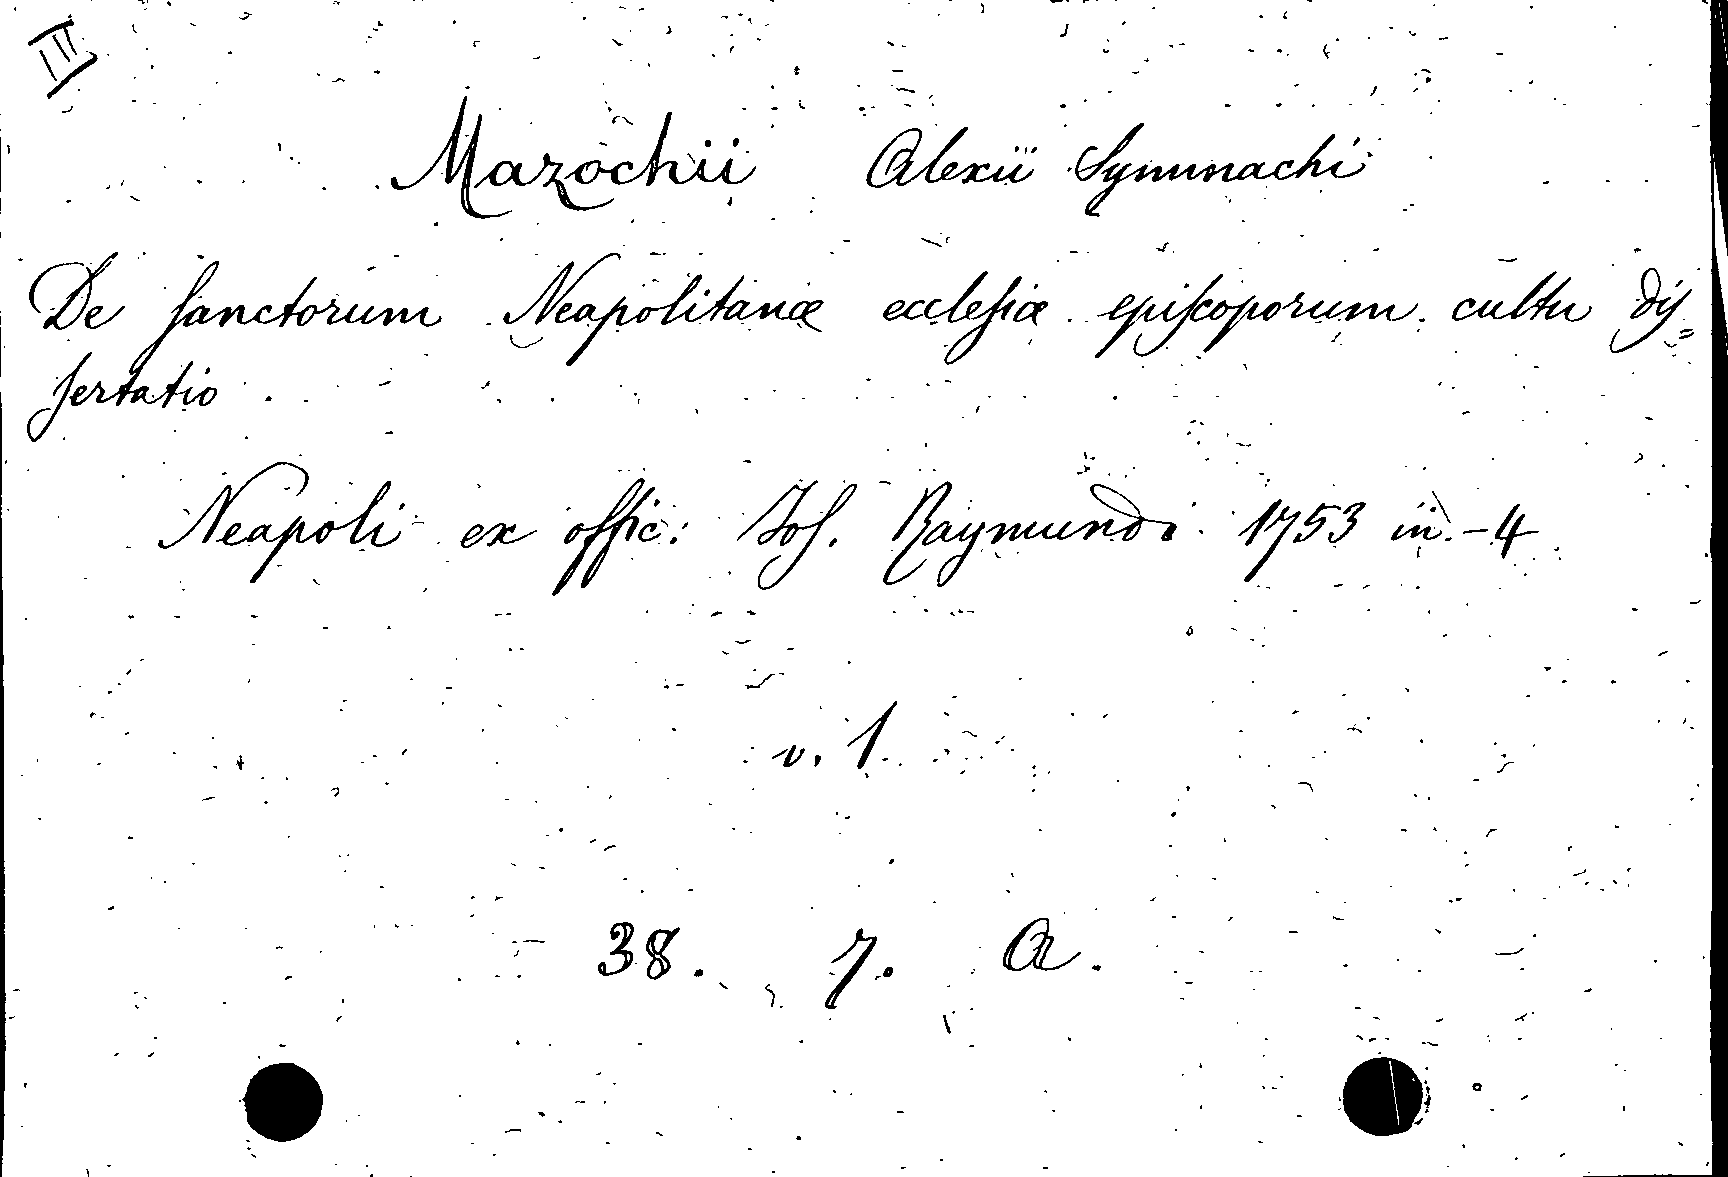 III
Mazochii Alexii Symmachi
De ſanctorum Neapolitanæ eccleſiæ epiſcoporum cultu diſ=
ſertatio
Neapoli ex offic: Joſ. Raymundi 1753 in-4
v. 1
38. 7. A.